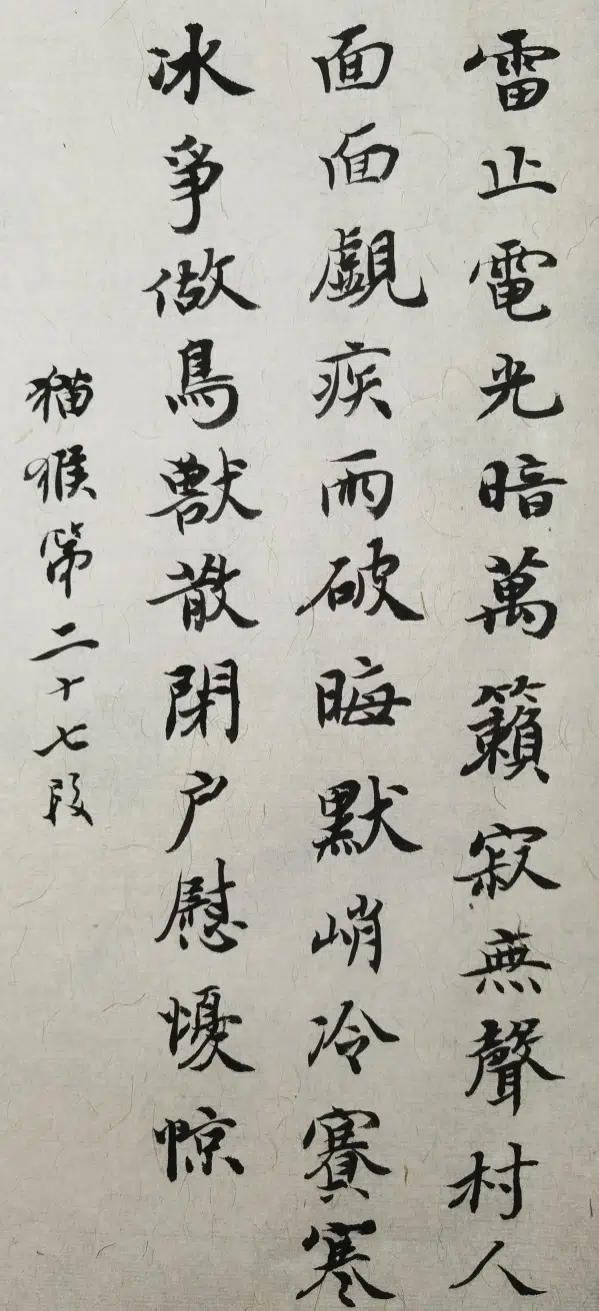 雷止電光暗萬籟寂無聲村人
面面覷疾雨破晦默峭冷賽寒
冰爭做鳥獸散閉户慰懮惊
猫猴第二十七段